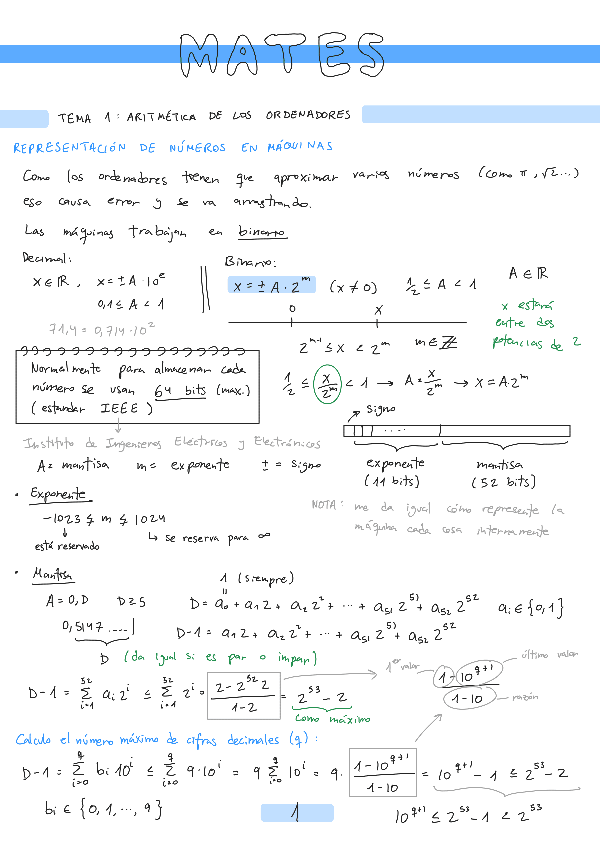 MATES
TEMA 1: ARITMÉTICA DE LOS ORDENADORES
REPRESENTACIÓN DE NÚMEROS EN MÁQUINAS
Como los ordenadores tienen que aproximar varios números (como π, √2...)
eso causa error y se va arrastrando.
Las máquinas trabajan en binario
Decimal:
x ∈ ℝ, x = ± A · 10^e
0,1 ≤ A < 1
71,4 = 0,714 · 10^2
Binario:
x = ± A · 2^m (x ≠ 0) 1/2 ≤ A < 1 A ∈ ℝ
0 x
2^(m-1) ≤ x < 2^m m ∈ ℤ
x estará
entre dos
potencias de 2
Normalmente para almacenar cada
número se usan 64 bits (max.)
(estándar IEEE)
1/2 ≤ x/2^m < 1 → A = x/2^m → x = A·2^m
Instituto de Ingenieros Eléctricos y Electrónicos
A = mantisa m = exponente ± = signo
signo
exponente mantisa
(11 bits) (52 bits)
• Exponente
-1023 ≤ m ≤ 1024
está reservado
↳ se reserva para ∞
NOTA: me da igual cómo represente la
máquina cada cosa internamente
• Mantisa
1 (siempre)
A = 0,D D ≥ 5 D = a₀ + a₁2 + a₂2^2 + ... + a₅₁2^51 + a₅₂2^52 aᵢ ∈ {0,1}
0,5147.... D-1 = a₁2 + a₂2^2 + ... + a₅₁2^51 + a₅₂2^52
D (da igual si es par o impar)
D-1 = Σ_(i=1)^52 aᵢ2^i ≤ Σ_(i=1)^52 2^i = (2-2^52 2)/(1-2) = 2^53 - 2
como máximo
1er valor
último valor
(1-10^(q+1))/(1-10)
razón
Calculo el número máximo de cifras decimales (q):
D-1 = Σ_(i=0)^q bᵢ10^i ≤ Σ_(i=0)^q 9·10^i = 9 Σ_(i=0)^q 10^i = 9·(1-10^(q+1))/(1-10) = 10^(q+1) - 1 ≤ 2^53 - 2
bᵢ ∈ {0,1,...,9}
10^(q+1) ≤ 2^53 - 1 < 2^53
1